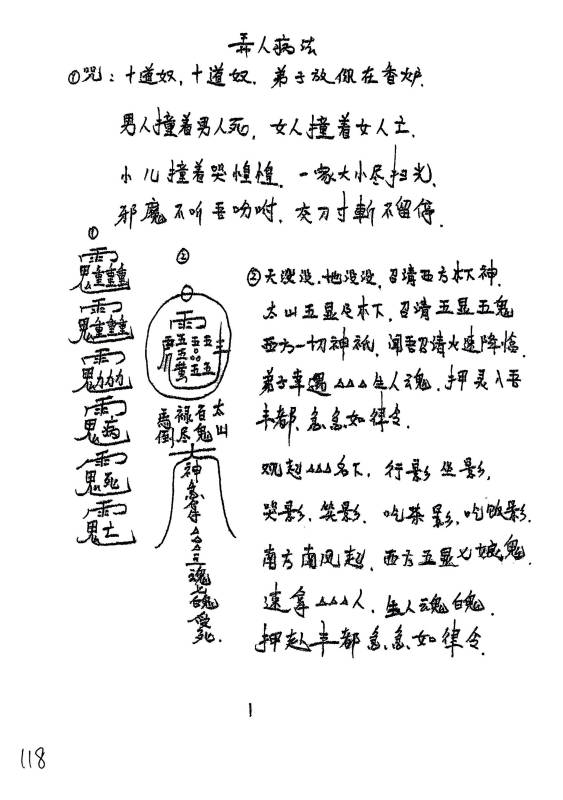 弄人病法
①咒：十道奴，十道奴．弟子放你在香炉．
男人撞着男人死，女人撞着女人亡．
小儿撞着哭惶惶．一家大小尽扫光，
邪魔不听吾吩咐，灾刀寸斬不留停．
①
②
太山
百鬼
禄尽
馬倒
大神急拿△△△三魂七魄受死．
②天没没，地没没，召請西方木下神．
太山五显足木下，召請五显五鬼
西方一切神祇，闻吾召請火速降临．
弟子幸遇△△△生人魂，押灵入吾
丰都，急急如律令．
观赵△△△名下，行影坐影，
哭影，笑影．吃茶影，吃饭影．
南方南风起，西方五显七娘鬼．
速拿△△△人，生人魂魄．
押赴丰都急急如律令．
1
118